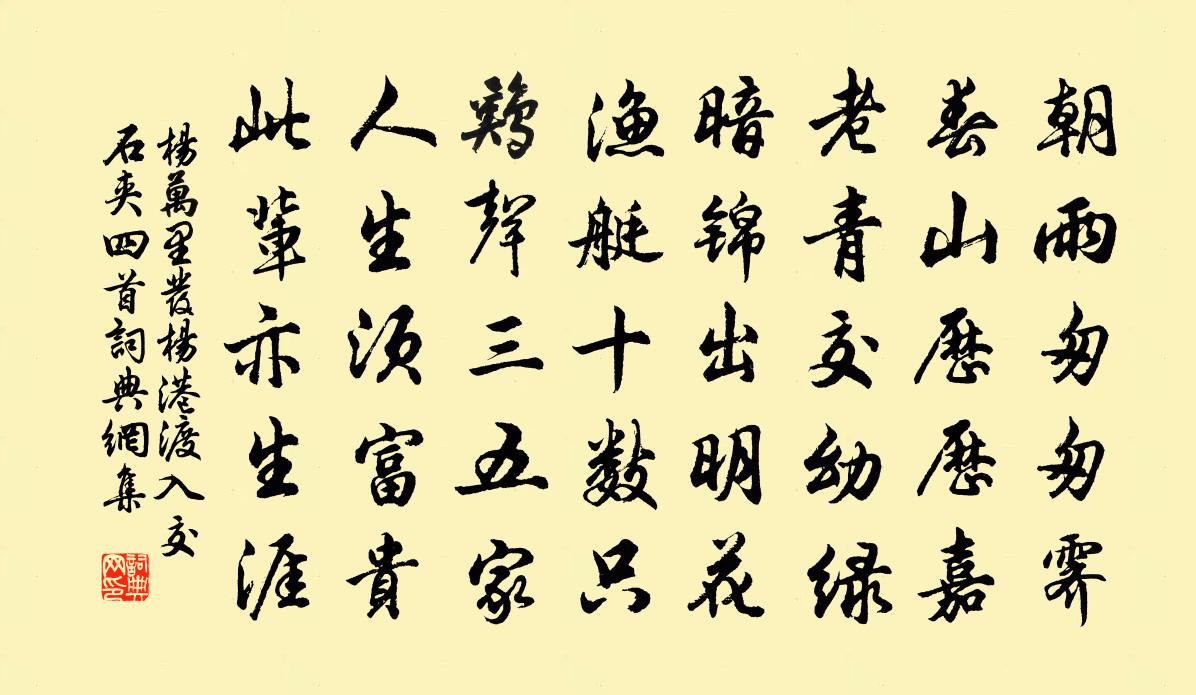 朝雨匆匆霁
春山歷歷嘉
老青交幼绿
暗锦出明花
漁艇十數只
鷄聲三五家
人生须富貴
此輩亦生涯
楊萬里發楊港渡入交
石夾四首詞典網集
詞典
网印